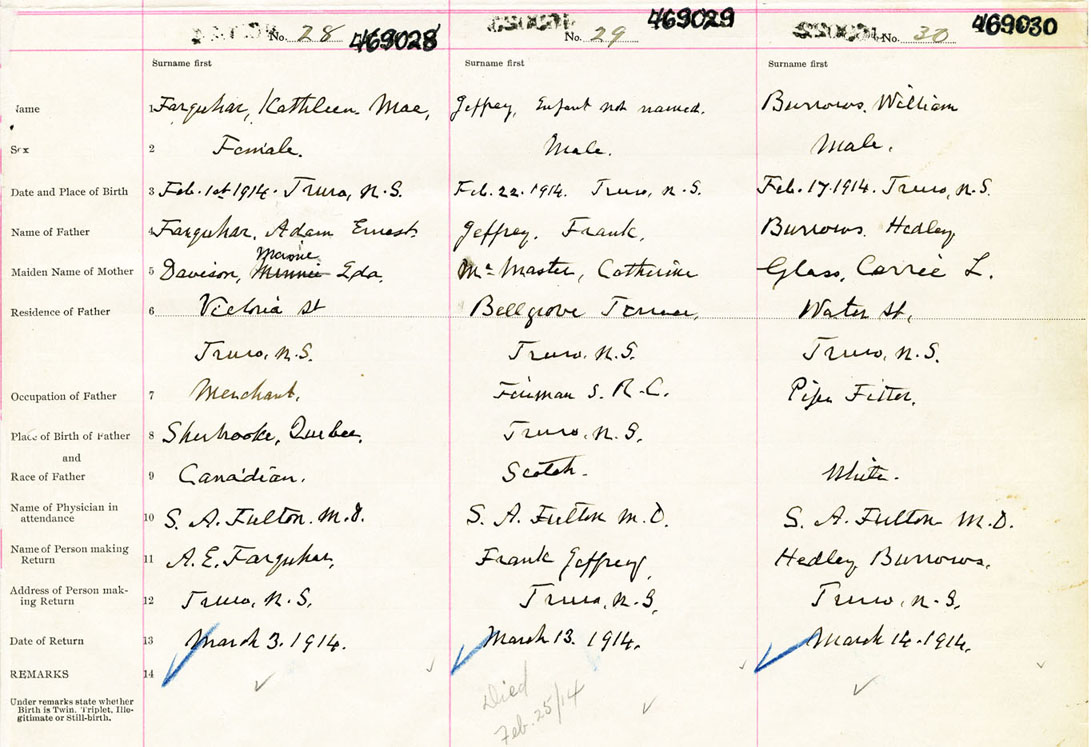 No. 28 469028 No. 29 469029 No. 30 469030
Surname first Surname first Surname first
Name 1 Farquhar, Kathleen Mae, Jeffrey, Enfant not named. Burrows, William
Sex 2 Female. Male. Male.
Date and Place of Birth 3 Feb. 1st 1914. Truro, N.S. Feb. 22. 1914. Truro, N.S. Feb. 17. 1914. Truro, N.S.
Name of Father 4 Farquhar, Adam Ernest. Jeffrey, Frank. Burrows, Hedley
Maiden Name of Mother 5 Davison, Minnie Eda, McMaster, Catherine Glass, Carrie L.
Residence of Father 6 Victoria St Bellgrove Terrace, Water St,
Truro, N.S. Truro, N.S. Truro, N.S.
Occupation of Father 7 Merchant. Fireman I. R. C. Pipe Fitter.
Place of Birth of Father 8 Sherbrooke, Quebec, Truro, N.S.
and
Race of Father 9 Canadian. Scotch. White.
Name of Physician in
attendance 10 S. A. Fulton M.D. S. A. Fulton M.D. S. A. Fulton M.D.
Name of Person making
Return 11 A. E. Farquhar, Frank Jeffrey, Hedley Burrows.
Address of Person mak-
ing Return 12 Truro, N.S. Truro, N.S, Truro, N.S.
Date of Return 13 March 3. 1914. March 13. 1914. March 14. 1914.
REMARKS 14
Under remarks state whether
Birth is Twin, Triplet, Ille-
gitimate or Still-birth.
Died
Feb. 25/14